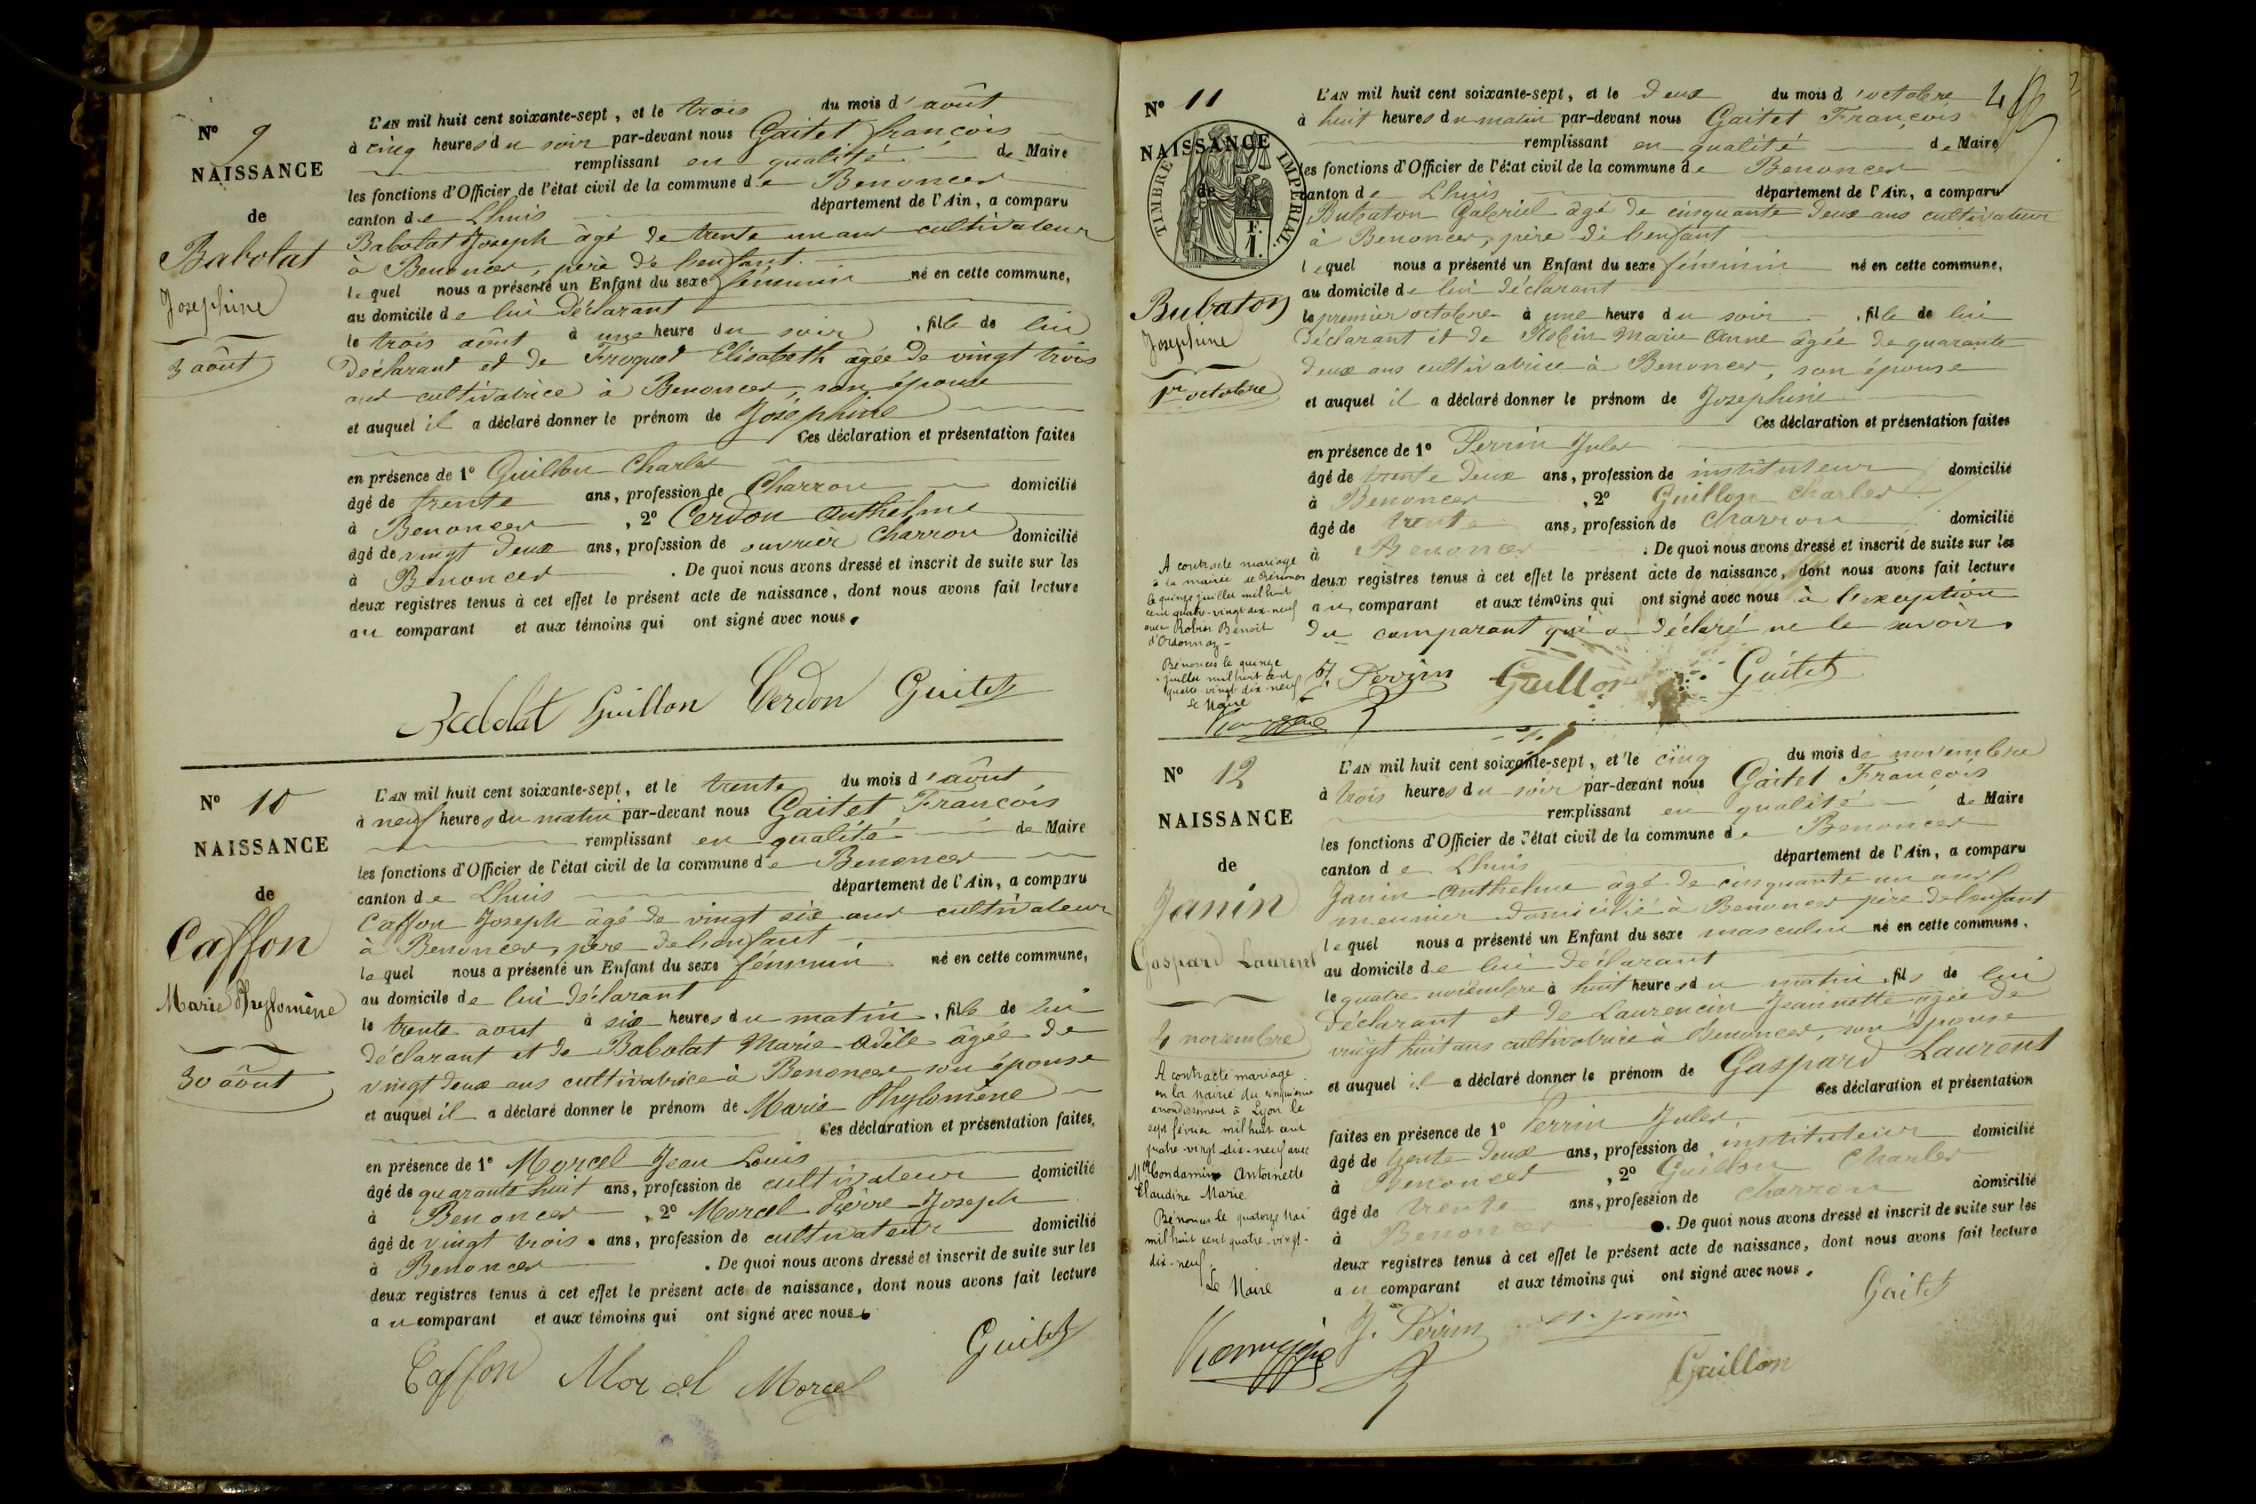 N° 9
NAISSANCE
de
Babolat
Josephine
3 août
L'AN mil huit cent soixante-sept, et le trois du mois d'août
à cinq heures du soir par-devant nous Gaitet françois
remplissant en qualité de Maire
les fonctions d'Officier de l'état civil de la commune de Benonces
canton de Lhuis département de l'Ain, a comparu
Babolat Joseph âgé de trente un ans cultivateur
à Benonces, père de l'enfant
lequel nous a présenté un Enfant du sexe féminin né en cette commune,
au domicile de lui déclarant
le trois août à une heure du soir, fille de lui
déclarant et de Froquet Elisabeth âgée de vingt trois
ans cultivatrice à Benonces, son épouse
et auquel il a déclaré donner le prénom de Joséphine
Ces déclaration et présentation faites
en présence de 1° Guillon Charles
âgé de trente ans, profession de Charron domicilié
à Benonces, 2° Cerdon Anthelme
âgé de vingt deux ans, profession de ouvrier Charron domicilié
à Benonces. De quoi nous avons dressé et inscrit de suite sur les
deux registres tenus à cet effet le présent acte de naissance, dont nous avons fait lecture
au comparant et aux témoins qui ont signé avec nous.
Babolat Guillon Cerdon Gaitet
N° 10
NAISSANCE
de
Caffon
Marie Phylomène
30 août
L'AN mil huit cent soixante-sept, et le trente du mois d'août
à neuf heures du matin par-devant nous Gaitet, François
remplissant en qualité de Maire
les fonctions d'Officier de l'état civil de la commune de Benonces
canton de Lhuis département de l'Ain, a comparu
Caffon Joseph âgé de vingt six ans cultivateur
à Benonces, père de l'enfant
lequel nous a présenté un Enfant du sexe féminin né en cette commune,
au domicile de lui déclarant
le trente aout à six heures du matin, fille de lui
déclarant et de Babolat Marie Adèle âgée de
vingt deux ans cultivatrice à Benonces son épouse
et auquel il a déclaré donner le prénom de Marie Phylomène
Ces déclaration et présentation faites,
en présence de 1° Morcel Jean Louis
âgé de quarante huit ans, profession de cultivateur domicilié
à Benonces, 2° Morcel Pierre Joseph
âgé de vingt trois ans, profession de cultivateur domicilié
à Benonces. De quoi nous avons dressé et inscrit de suite sur les
deux registres tenus à cet effet le présent acte de naissance, dont nous avons fait lecture
au comparant et aux témoins qui ont signé avec nous.
Gaitet
Caffon Morcel Morcel
N° 11
NAISSANCE
de
TIMBRE IMPÉRIAL.
F.
1.
Bubaton
Josephine
1er octobre
A contracté mariage
à la mairie de Bénonces
le quinze juillet mil huit
cent quatre-vingt dix-neuf
avec Robin Benoit
d'Ordonnaz
Bénonces le quinze
juillet mil huit cent
quatre vingt dix-neuf
Le Maire
L'AN mil huit cent soixante-sept, et le deux du mois d'octobre
à huit heures du matin par-devant nous Gaitet François
remplissant en qualité de Maire
les fonctions d'Officier de l'état civil de la commune de Benonces
canton de Lhuis département de l'Ain, a comparu
Bubaton Gabriel âgé de cinquante deux ans cultivateur
à Benonces, père de l'enfant
lequel nous a présenté un Enfant du sexe féminin né en cette commune,
au domicile de lui déclarant
le premier octobre à une heure du soir, fille de lui
déclarant et de Robin Marie Anne âgée de quarante
deux ans cultivatrice à Benonces, son épouse
et auquel il a déclaré donner le prénom de Josephine
Ces déclaration et présentation faites
en présence de 1° Perrin Jules
âgé de trente deux ans, profession de instituteur domicilié
à Benonces, 2° Guillon Charles
âgé de trente ans, profession de charron domicilié
à Benonces. De quoi nous avons dressé et inscrit de suite sur les
deux registres tenus à cet effet le présent acte de naissance, dont nous avons fait lecture
au comparant et aux témoins qui ont signé avec nous à l'exception
du comparant qui a déclaré ne le savoir.
J. Perrin Guillon Gaitet
N° 12
NAISSANCE
de
Janin
Gaspard Laurent
4 novembre
A contracté mariage
en la mairie du cinquième
arrondissement à Lyon le
sept février mil huit cent
quatre-vingt-dix-neuf avec
Condamin Antoinette
Claudine Marie
Bénonces le quatorze Mai
mil huit cent quatre-vingt-
dix-neuf
Le Maire
L'AN mil huit cent soixante-sept, et le cinq du mois de novembre
à trois heures du soir par-devant nous Gaitet François
remplissant en qualité de Maire
les fonctions d'Officier de l'état civil de la commune de Benonces
canton de Lhuis département de l'Ain, a comparu
Janin Anthelme âgé de cinquante un ans
meunier domicilié à Benonces père de l'enfant
lequel nous a présenté un Enfant du sexe masculin né en cette commune,
au domicile de lui déclarant
le quatre novembre à huit heures du matin, fils de lui
déclarant et de Laurencin Jeannette âgée de
vingt huit ans cultivatrice à Benonces, son épouse
et auquel il a déclaré donner le prénom de Gaspard Laurent
Ces déclaration et présentation
faites en présence de 1° Perrin Jules
âgé de trente deux ans, profession de instituteur domicilié
à Benonces, 2° Guillon Charles
âgé de trente ans, profession de charron domicilié
à Benonces. De quoi nous avons dressé et inscrit de suite sur les
deux registres tenus à cet effet le présent acte de naissance, dont nous avons fait lecture
au comparant et aux témoins qui ont signé avec nous.
J. Perrin Gaitet
Guillon